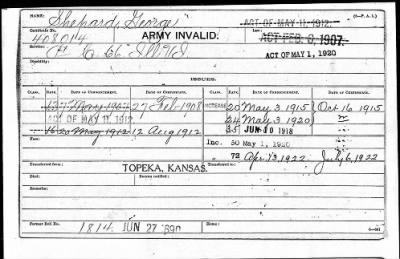 NAME: Shepard, George ACT OF MAY 11, 1912. (3—P. A. I.)
CERTIFICATE: 408014 ARMY INVALID. ACT FEB. 6, 1907.
SERVICE: F Co 66 Ills Inf. ACT OF MAY 1, 1920
ISSUES:
CLASS. RATE. DATE OF COMMENCEMENT. DATE OF CERTIFICATE. CLASS. RATE. DATE OF COMMENCEMENT. DATE OF CERTIFICATE.
27 Feb 1908 INCREASE 20 May 3, 1915 Oct 16 1915
ACT OF MAY 11, 1912 24 May 3 1920
16 20 May 1912 12 Aug 1912 35 JUN 10 1918
Inc. 50 May 1, 1920
72 Apr. 13, 1922 July 6, 1922
Transferred from TOPEKA, KANSAS. Transferred to
Died: Notice received:
Former Roll No. 1814 JUN 27 1890